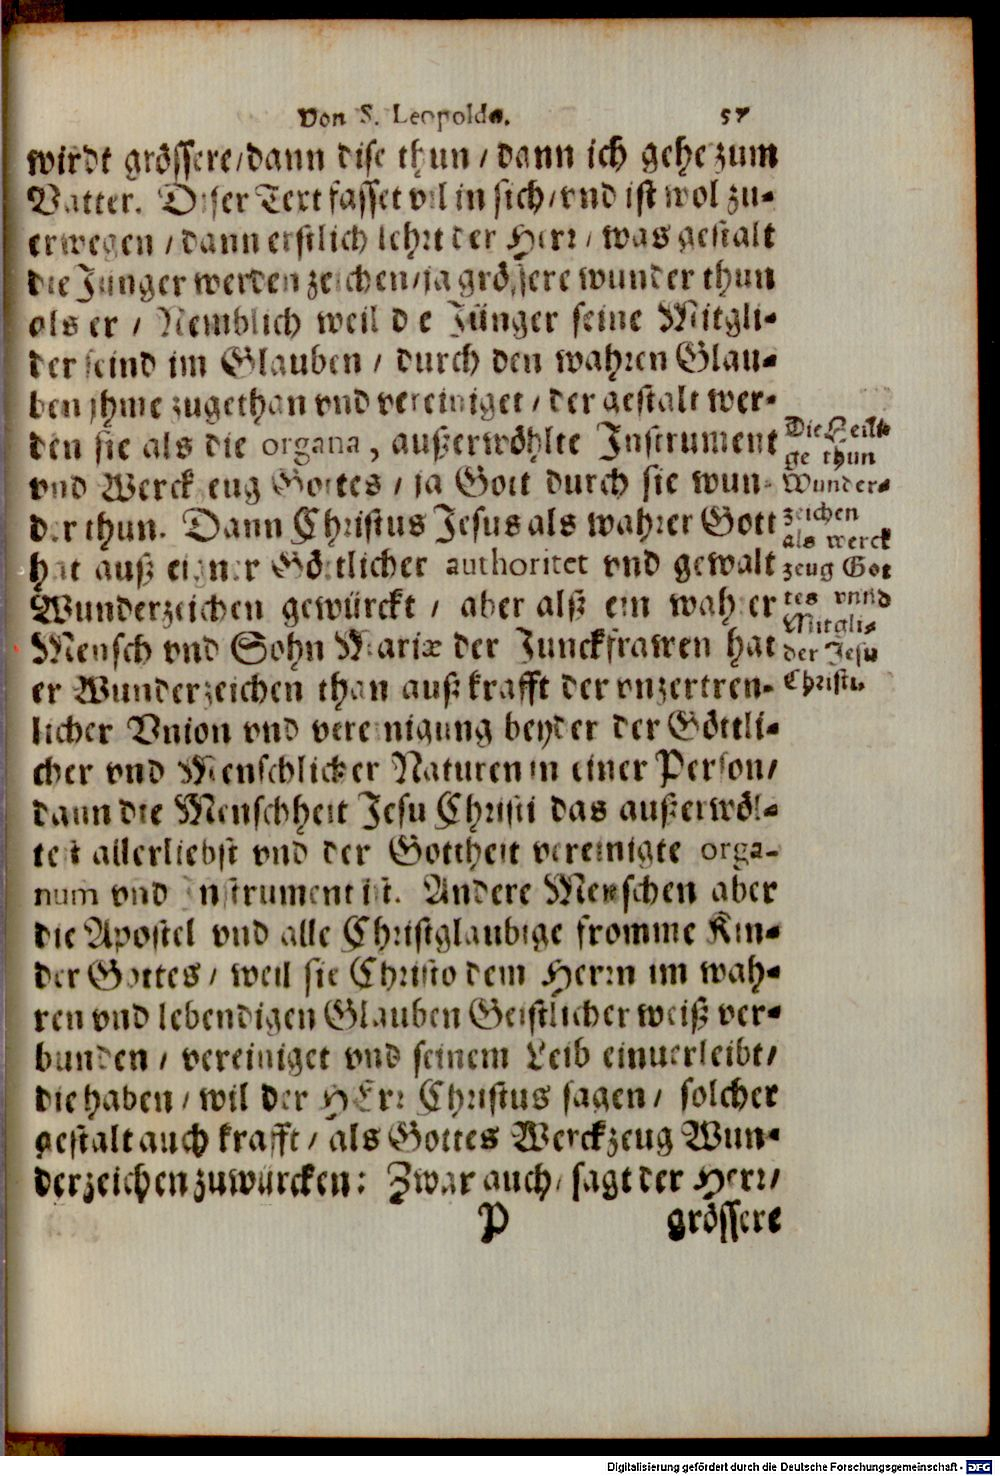 Von S. Leopoldo. 57
wirdt grössere/dann dise thun / dann ich gehe zum
Vatter. Diser Text fasset vil in sich/vnd ist wol zu-
erwegen / dann erstlich lehrt der Herr / was gestalt
die Jünger werden zeichen/ja grössere wunder thun
als er / Nemblich weil die Jünger seine Mitgli-
der seind im Glauben / durch den wahren Glau-
ben jhme zugethan vnd vereiniget / der gestalt wer-
den sie als die organa, außerwöhlte Instrument
vnd Werckzeug Gottes / ja Gott durch sie wun-
der thun. Dann Christus Jesus als wahrer Gott
hat auß eigner Göttlicher authoritet vnd gewalt
Wunderzeichen gewürckt / aber alß ein wahrer
Mensch vnd Sohn Mariæ der Junckfrawen hat
er Wunderzeichen than auß krafft der vnzertren-
licher Vnion vnd vereinigung beyder der Göttli-
cher vnd Menschlicher Naturen in einer Person/
dann die Menschheit Jesu Christi das außerwöl-
test allerliebst vnd der Gottheit vereinigte orga-
num vnd Instrument ist. Andere Menschen aber
die Apostel vnd alle Christglaubige fromme Kin-
der Gottes / weil sie Christo dem Herrn im wah-
ren vnd lebendigen Glauben Geistlicher weiß ver-
bunden / vereiniget vnd seinem Leib einuerleibt/
die haben / wil der HErr Christus sagen / solcher
gestalt auch krafft / als Gottes Werckzeug Wun-
derzeichen zuwürcken: Zwar auch/ sagt der Herr/
P grössere
Die Heili-
ge thun
Wunder-
zeichen
als werck
zeug Got
tes vnnd
Mitgli-
der Jesu
Christi.
Digitalisierung gefördert durch die Deutsche Forschungsgemeinschaft - DFG